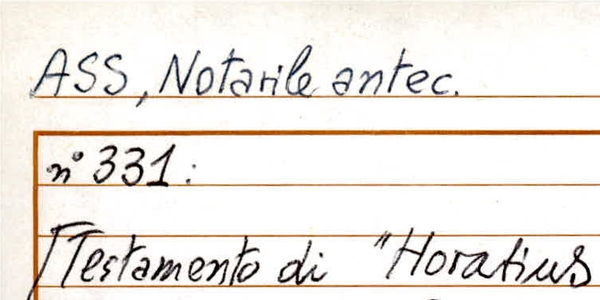 ASS, Notarile antec.
n° 331:
Testamento di "Horatius